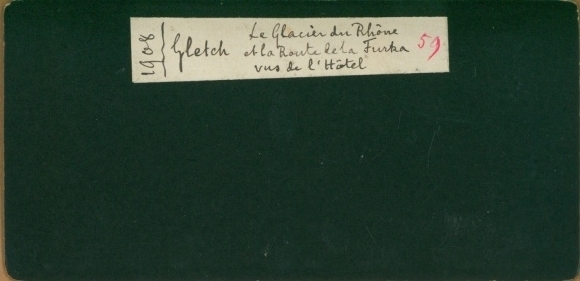 1908
Gletch
Le Glacier du Rhône
et la Route de la Furka
vus de l'Hôtel
59